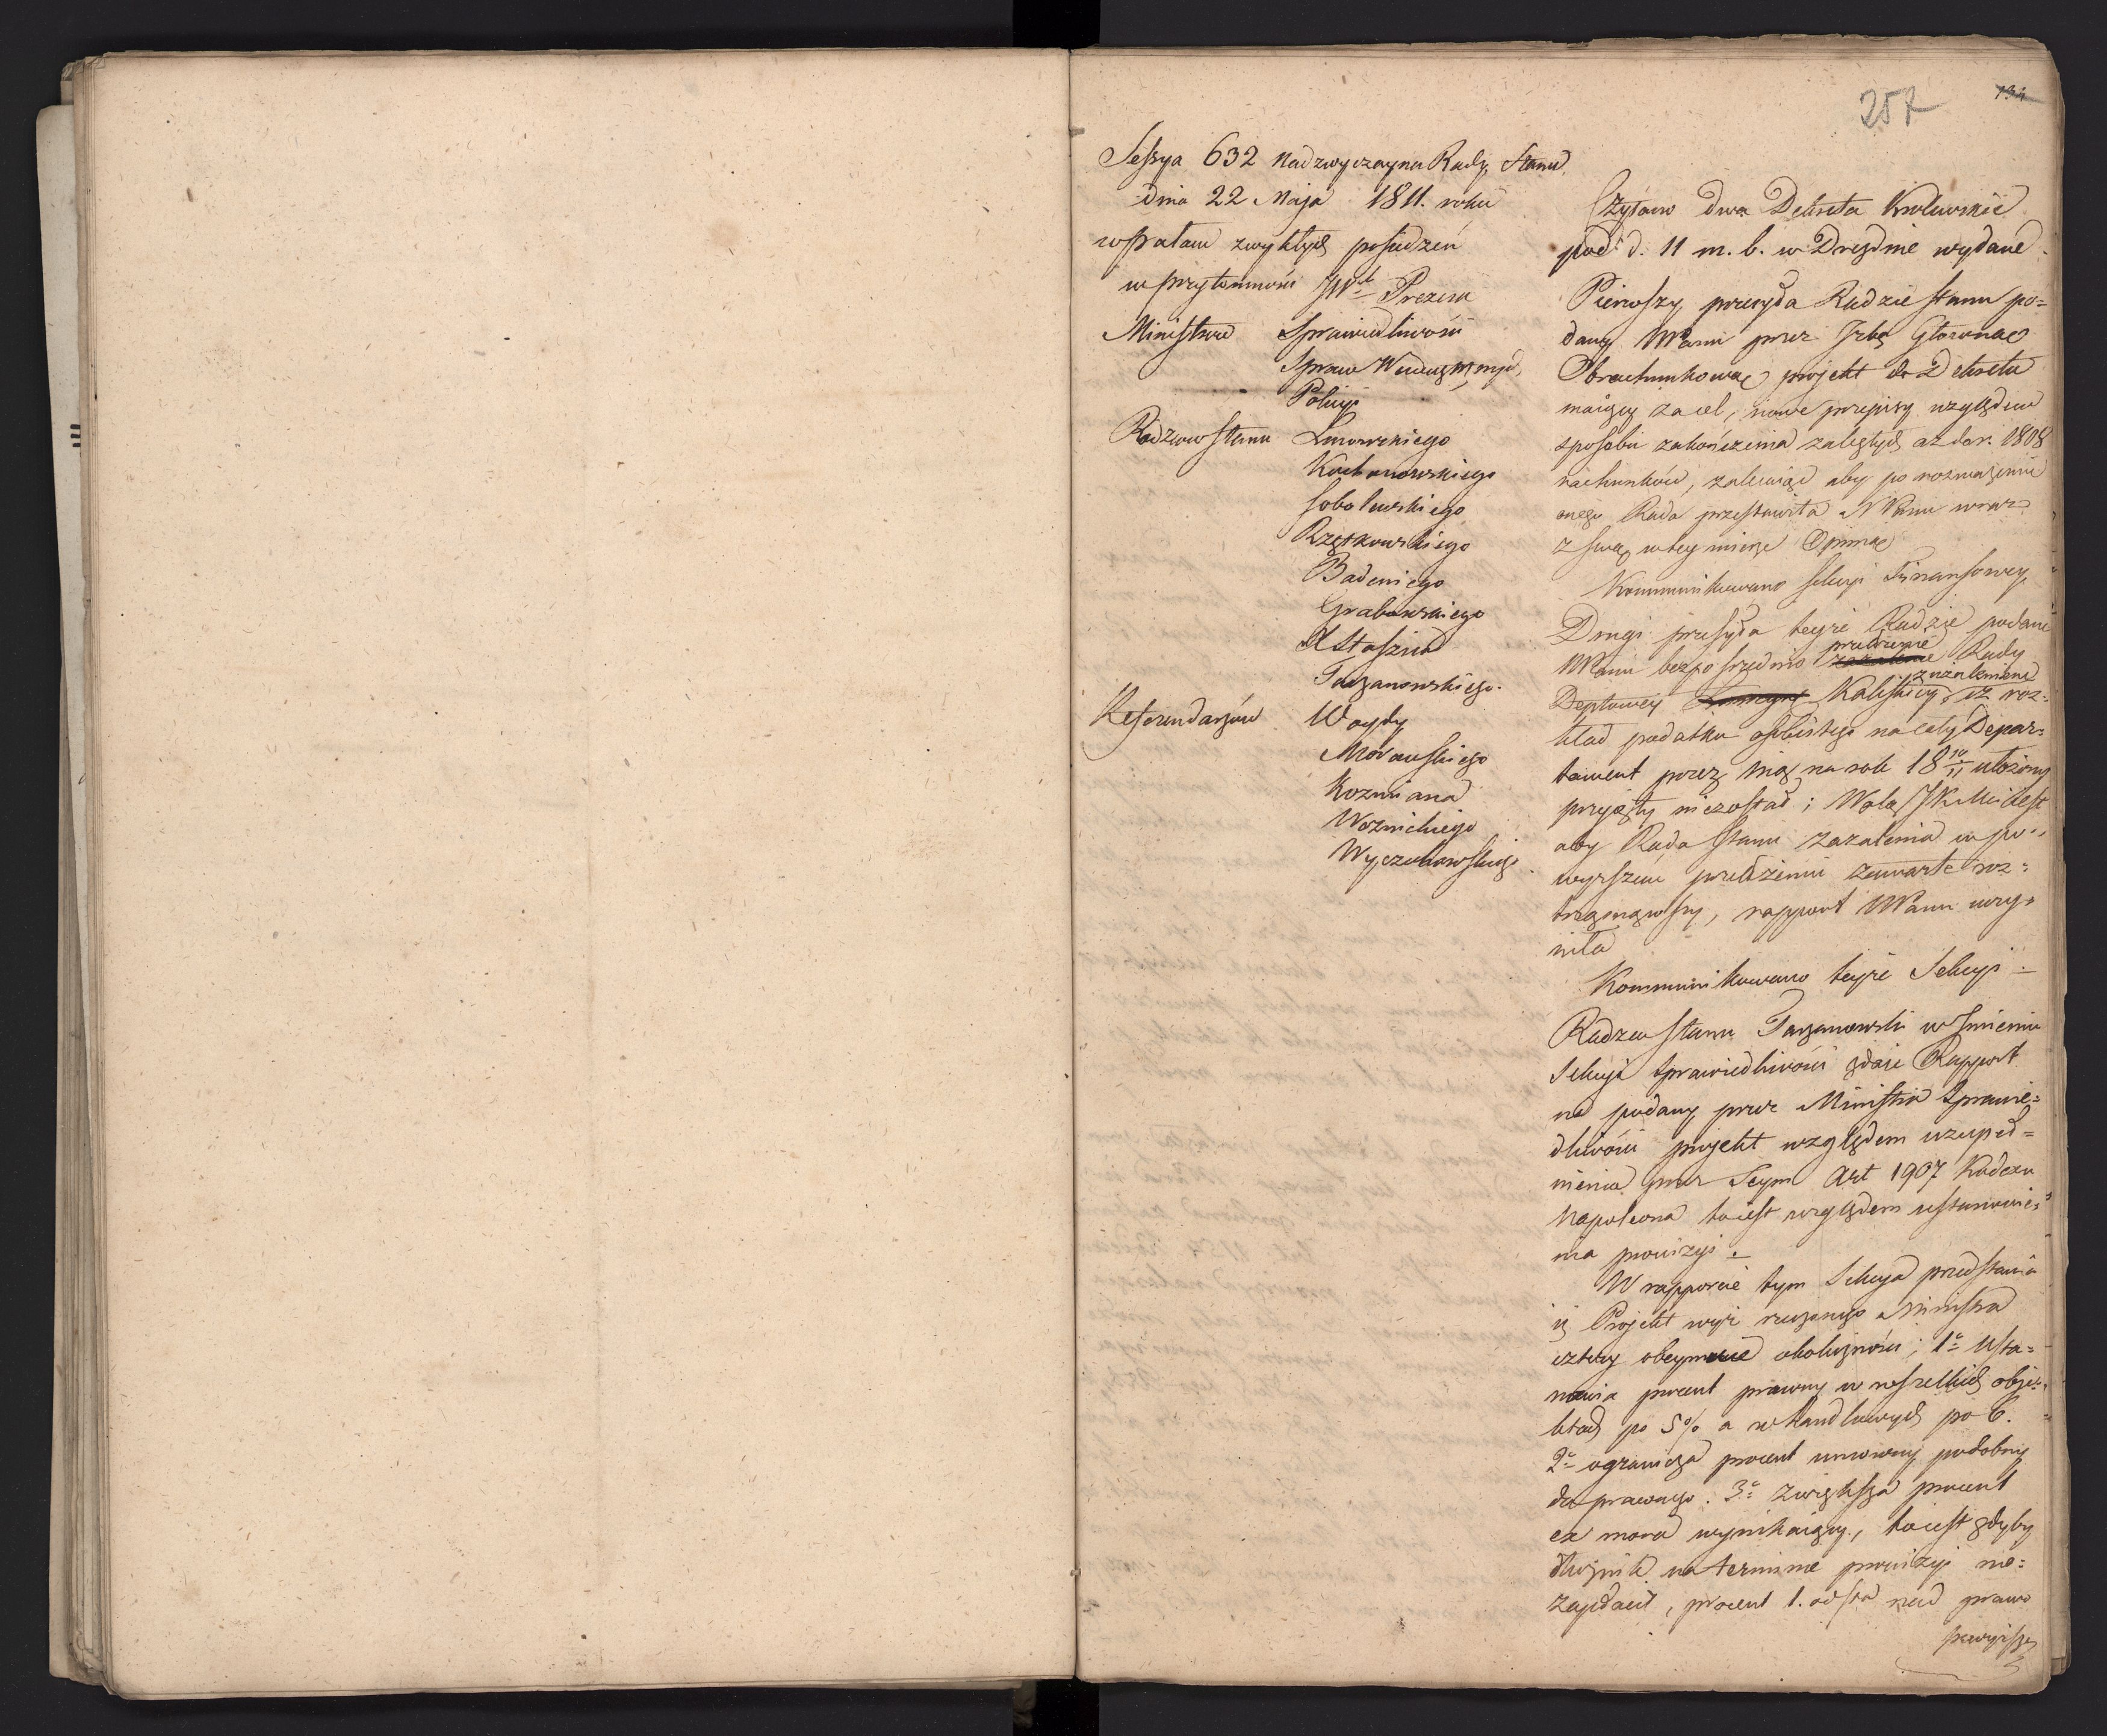 257
134
Sessya 632 nadzwyczayna Rady Stanu
dnia 22 Maja 1811. roku
w Pałacu zwykłych posiedzeń
w przytomności JW Prezesa
Ministrów Sprawiedliwości
Spraw Wewnętrznych,
Policyi
Radzców Stanu Linowskiego
Kochanowskiego
Sobolewskiego
Rzętkowskiego
Badeniego
Grabowskiego
X Staszica
Tarzanowskiego.
Referendarzów Woydy
Morawskiego
Kozmiana
Woznickiego
Wyczechowskiego
Czytano dwa Dekreta Krolewskie
pod d. 11 m. b. w Dreznie wydane.
Pierwszy przesyła Radzie stanu po=
dany NPanu przez Jzbę Głowną
Obrachunkową projekt do Dekretu
maiący za cel, nowe przepisy względem
sposobu zakończenia zaległych aż do r. 1808
rachunków, zalecaiąc aby po rozważeniu
onego Rada przestawiła NPanu wraz
z swą w tey mierze Opinią
Kommunikowano Sekcyi Finansowey
Drugi przesyła teyże Radzie podane
przełożenie
NPanu bezpośrednio zażalenie Rady
zażaleniem
Deptowey Kaliskiey, iż roz=
kład podatku osobistego na cały Depar=
tament przez nią na rok 18 10/11 ułożony
przyjęty niezostał; Wolą JKMci iest
aby Rada Stanu zażalenia w po=
wyższem przełożeniu zawarte roz=
trząsnąwszy, rapport NPanu uczy=
niła
Kommunikowano teyże Sekcyi.
Radzca Stanu Tarzanowski w Imieniu
Sekcyi Sprawiedliwości zdaie Rapport
na podany przez Ministra Sprawie=
dliwości projekt względem uzupeł=
nienia przez Seym Art 1907 Kodexu
Napoleona to iest względem ustanowie=
nia prowizyi.
W rapporcie tym Sekcya przedstawia
iż Projekt wyż rzeczonego Ministra
cztery obeymuie okoliczności; 1o Usta=
nawia procent prawny w wszelkich obje=
ktach po 5% a w handlowych po 6.
2o ogranicza procent umowny podobny
do prawnego. 3o Zwiększa procent
ex mora wynikaiący, to iest gdyby
dłużnik na terminie prowizyi nie=
zapłacił, procent 1. od sta nad prawo
powyższe